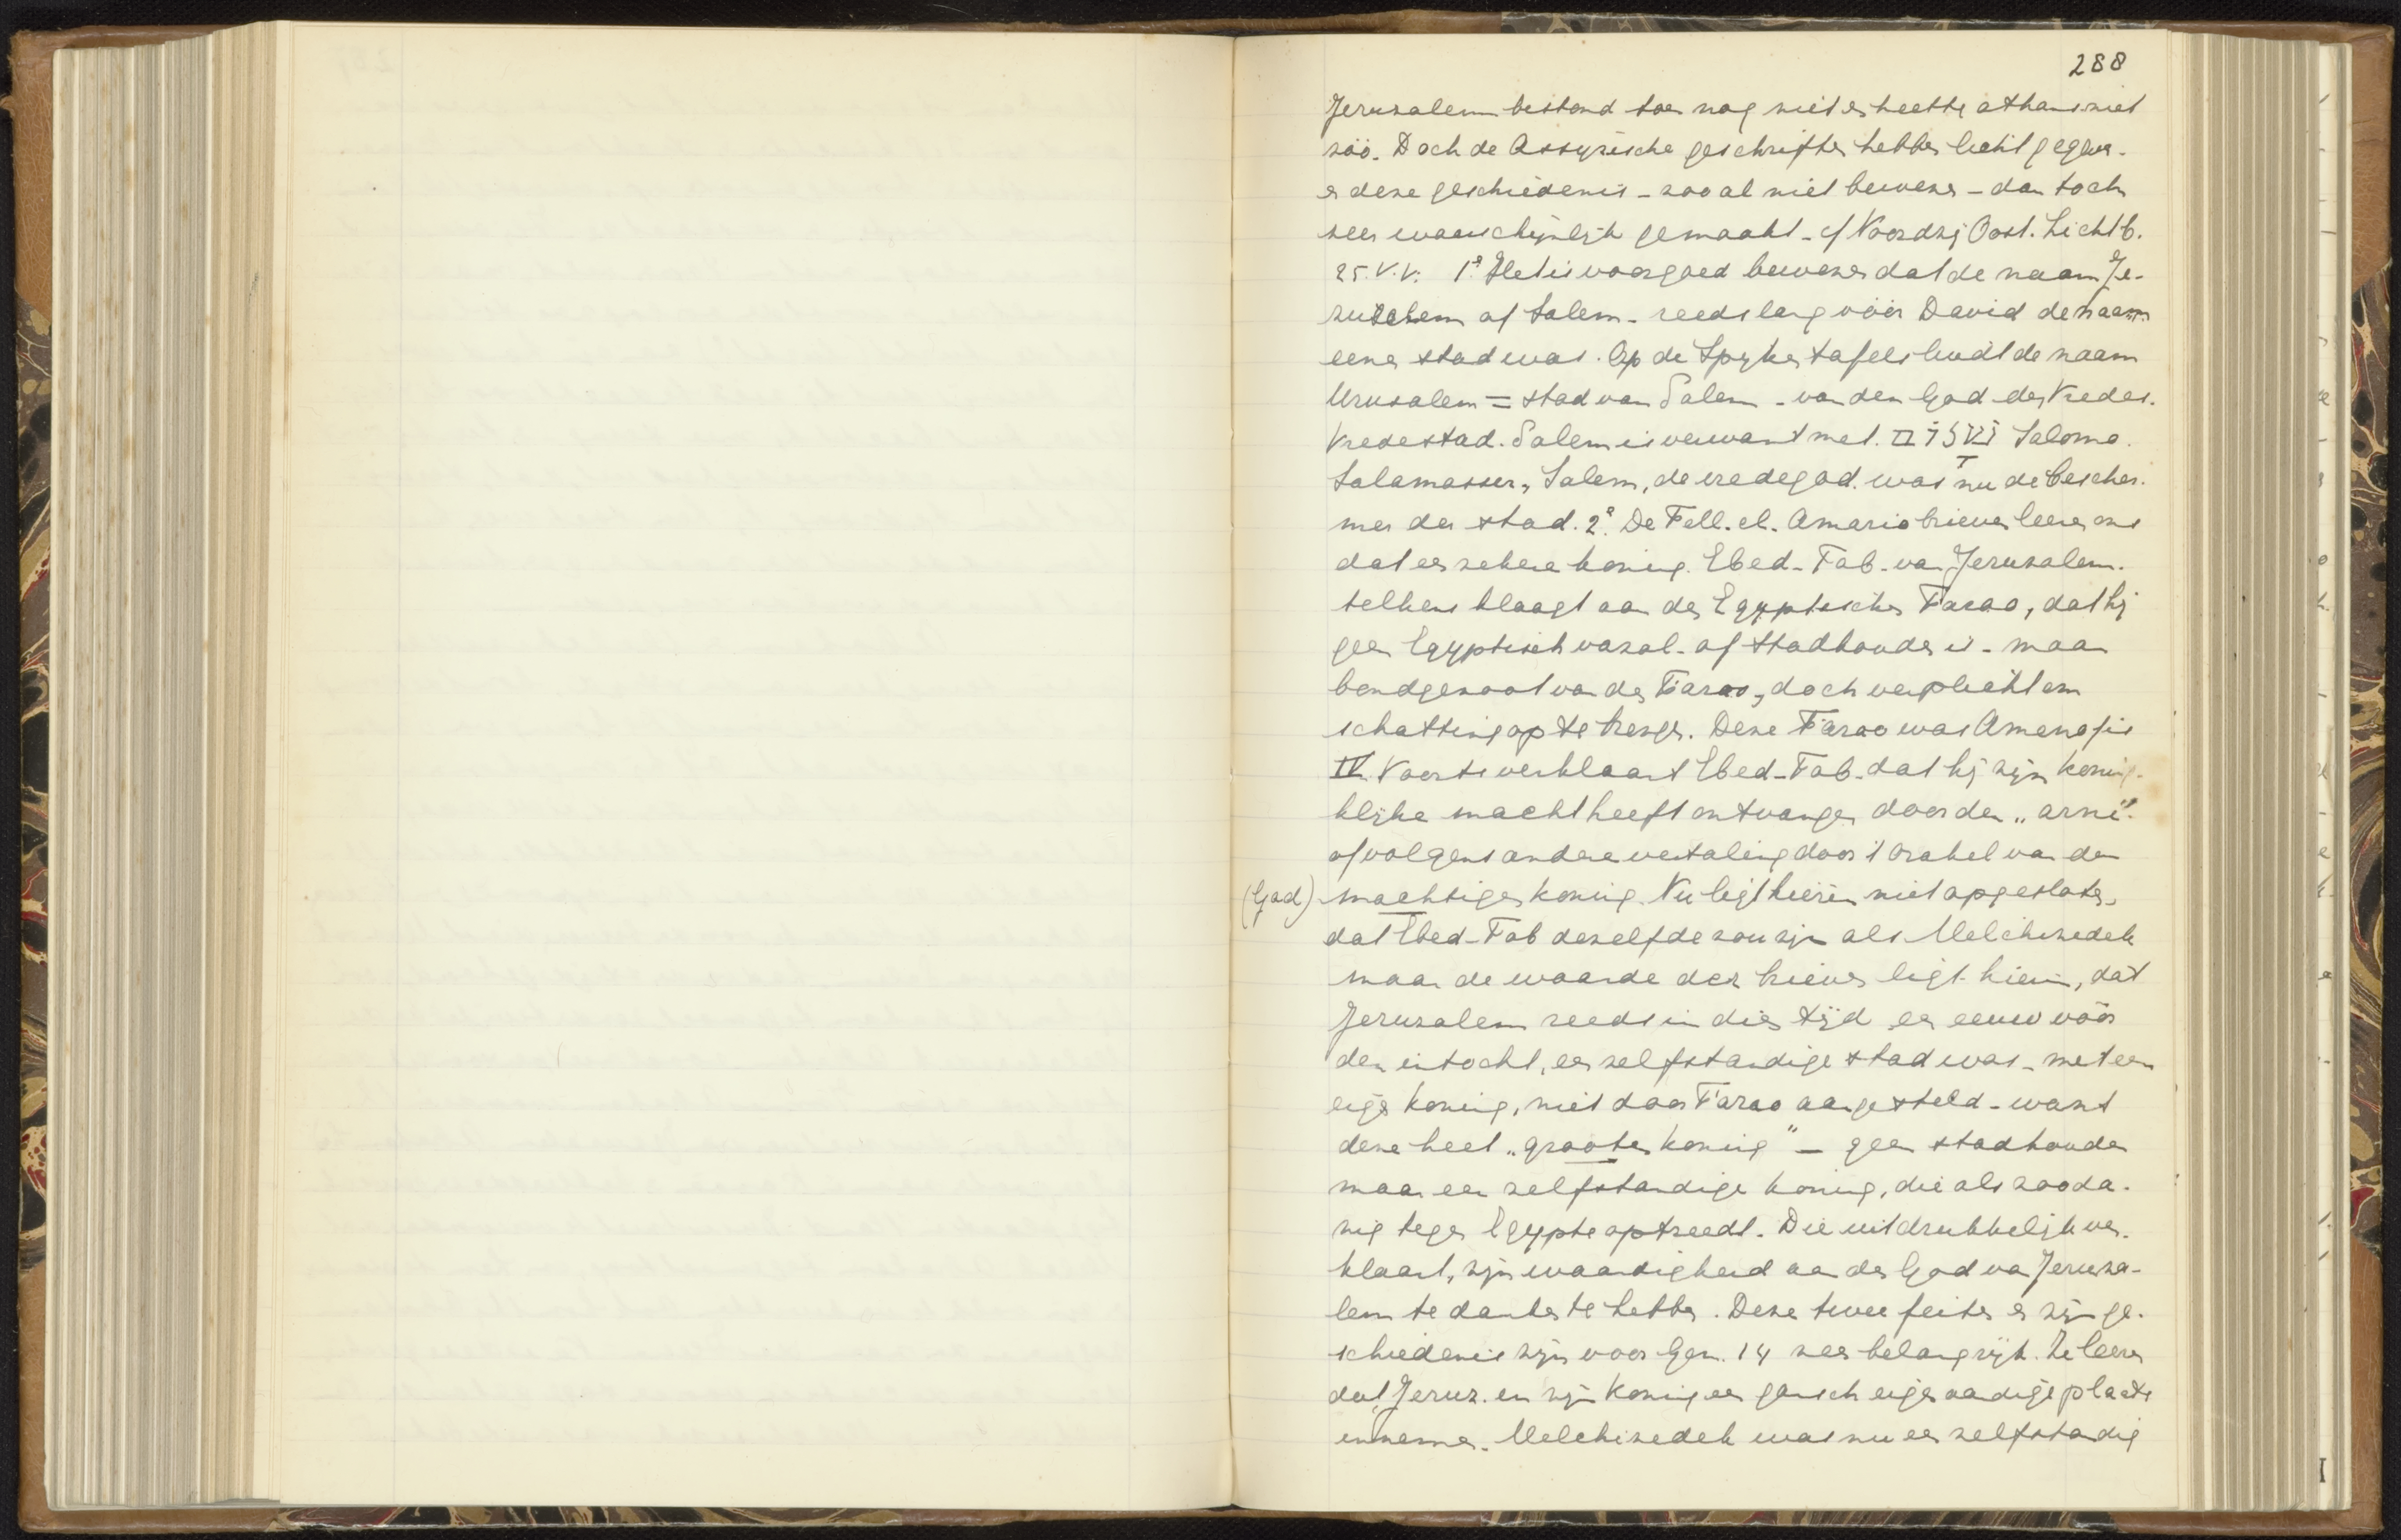 288
Jeruzalem bestond toen nog niet en heette althans niet
zóó. Doch de Assyrische geschriften hebben licht gegeven.
en deze geschiedenis - zoo al niet bewezen - dan toch
zeer waarschijnlijk gemaakt - cf Noordzij Oost. Licht b.
25. v.v. 1e Het is voorgoed bewezen dat de naam Je-
ruzalem of Salem - reeds lang vóór David de naam
eener stad was. Op de Spijkertafels luidt de naam
Urusalem = stad van Salem - van den God des Vredes.
Vredestad. Salem is verwant met שלום Salomo.
Salamasser, Salem, de vredegod. was nu de bescher-
mer der stad. 2e De Tell. el. Amarna brieven leeren ons
dat een zekere koning Ebed-Tab - van Jeruzalem.
telkens klaagt aan den Egyptischen Farao, dat hij
geen Egyptisch vazal - of Stadhouder is - maar
bondgenoot van den Farao, doch verplicht om
schatting op te brengen. Deze Farao was Amenofis
IV. Voorts verklaart Ebed-Tab - dat hij zijn konink-
lijke macht heeft ontvangen door den „arm"
of volgens andere vertaling door 't orakel van den
(God) machtigen koning. Nu ligt hierin niet opgesloten,
dat Ebed-Tob dezelfde zou zijn als Melchizedek
maar de waarde der brieven ligt hierin, dat
Jeruzalem reeds in dien tijd een eeuw vóór
den intocht, een zelfstandige stad was - met een
eigen koning, niet door Farao aangesteld - want
deze heet „grooten koning" - geen stadhouder
maar een zelfstandige koning, die als zooda-
nig tegen Egypte optreedt. Die uitdrukkelijk ver-
klaart, zijn waardigheid aan den God van Jeruza-
lem te danken te hebben. Deze twee feiten en zijn ge-
schiedenis zijn voor Gen. 14 zeer belangrijk. Ze leeren
dat Jeruz. en zijn koning een gansch eigenaardige plaats
innemen. Melchizedek was nu een zelfstandig